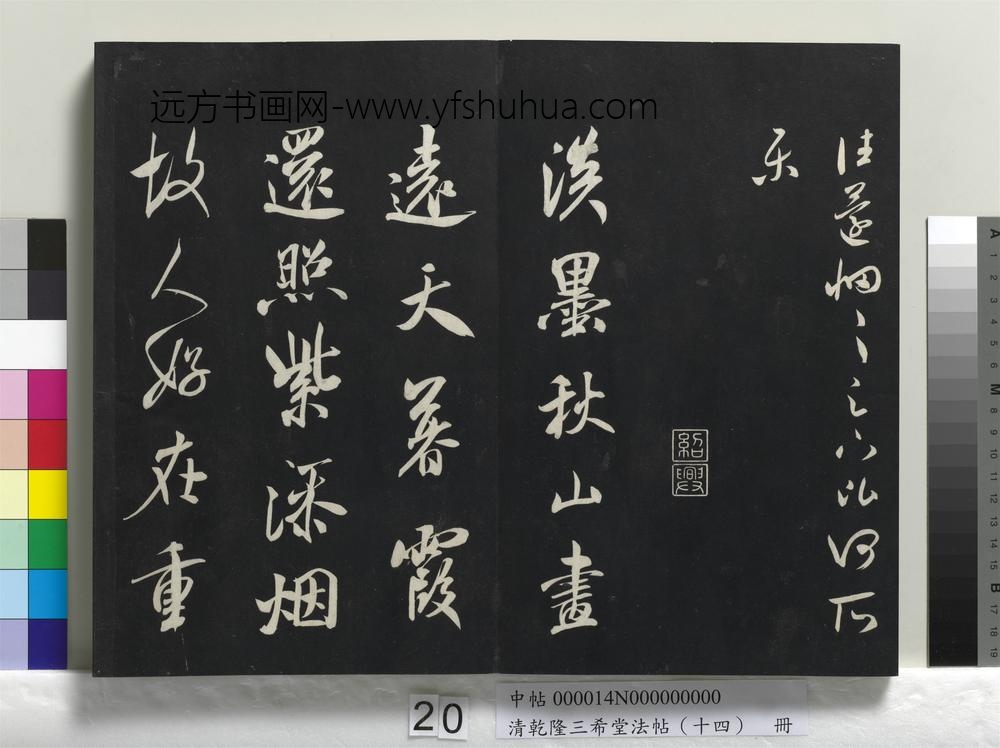 远方书画网-www.yfshuhua.com
淡墨秋山畫
遠天暮霞
還照紫添烟
故人好在重
紹興
20
中帖 000014N000000000
清乾隆三希堂法帖（十四） 冊
A
1
2
3
4
5
6
M
8
9
10
11
12
13
14
15
B
17
18
19